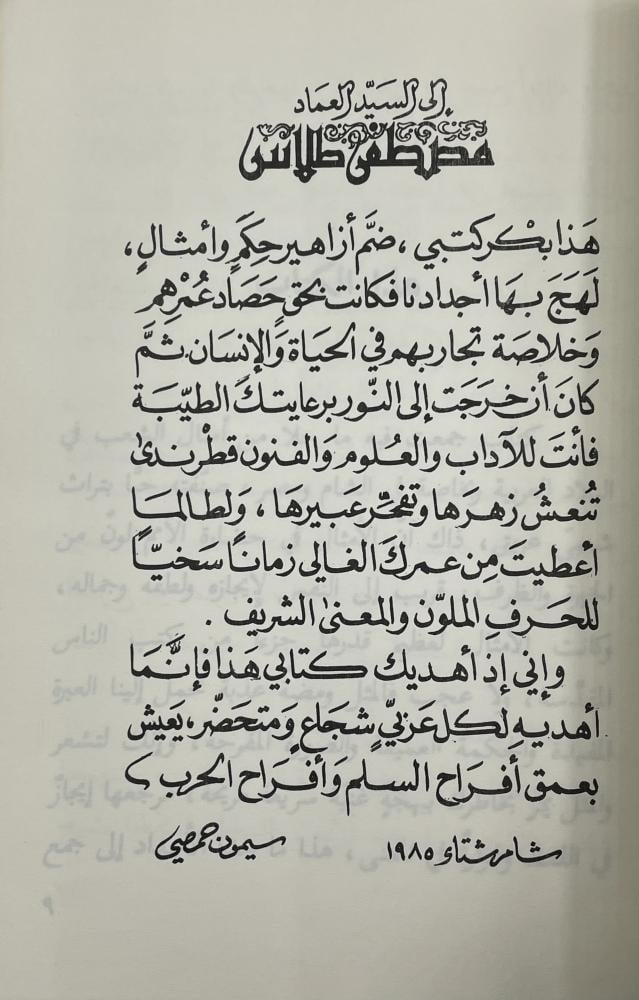 إلى السيّد العماد
مصطفى طلاس
هَذا بكْر كتبي ، ضمَّ أزاهير حِكَمٍ وأمثالٍ ،
لَهَجَ بهَا أجدادنا فكانت بحَق حَصَادَ عُمْرهِم
وَخلاصَة تجاربهم في الحيَاة وَالإنسَان ثمَّ
كانَ أن خرَجَت إلى النّور برعايتكَ الطيّبَة
فأنتَ للآداب وَالعُلوم وَالفنون قطْر ندىً
تُنعشُ زهرَها وَتفجّر عَبيرهَا ، وَلطالمَا
أعطيتَ مِن عمركَ الغالي زمانًا سَخيًّا
للحَرفِ الملوّن والمعنىٰ الشريف .
وإني إذ أهديك كتابي هَذا فإنَّمَا
أهديهِ لكل عَربيٍّ شجَاعٍ وَمتحَضّر ، يَعيش
بعمق أفراح السلم وَأفراح الحرب
شام شتاء ١٩٨٥ سيمون حمصي
٩